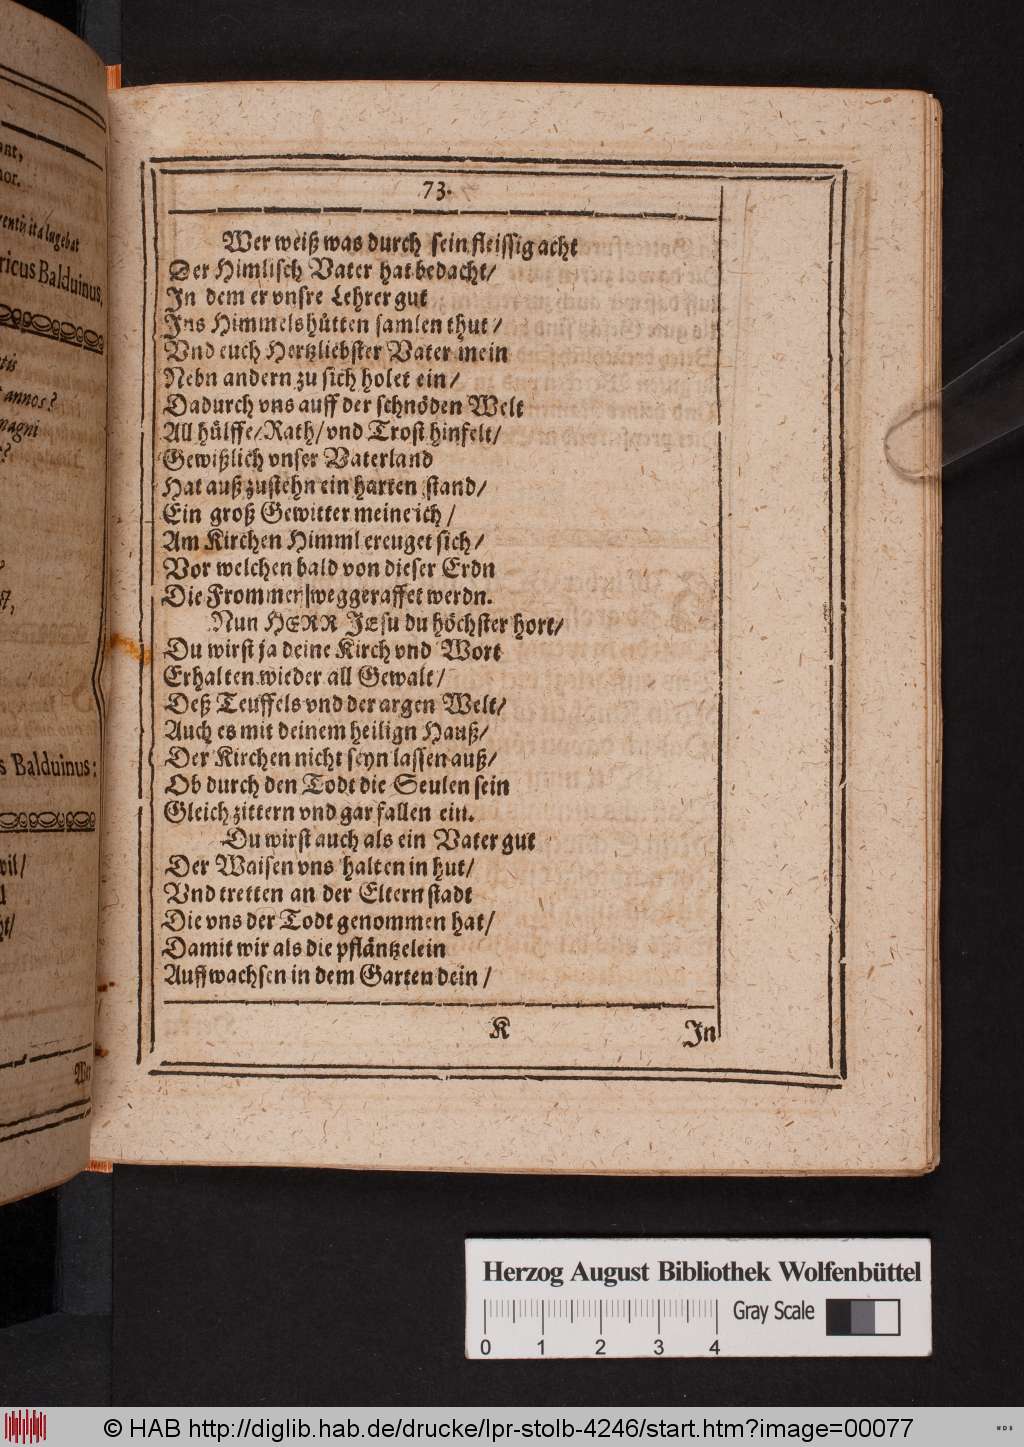 ant,
nor.
ventis ita lugebat
ricus Balduinus,
annos?
magni
s Balduinus:
wil/
Wer
73.
Wer weiß was durch sein fleissig acht
Der Himlisch Vater hat bedacht/
In dem er vnsre Lehrer gut
Ins Himmelshütten samlen thut/
Vnd euch Hertzliebster Vater mein
Nebn andern zu sich holet ein/
Dadurch vns auff der schnöden Welt
All hülffe/Rath/vnd Trost hinfelt/
Gewißlich vnser Vaterland
Hat auß zustehn ein harten stand/
Ein groß Gewitter meine ich/
Am Kirchen Himml ereuget sich/
Vor welchen bald von dieser Erdn
Die Frommen weggeraffet werdn.
Nun HERR JEsu du höchster hort/
Du wirst ja deine Kirch vnd Wort
Erhalten wieder all Gewalt/
Deß Teuffels vnd der argen Welt/
Auch es mit deinem heilign Hauß/
Der Kirchen nicht seyn lassen auß/
Ob durch den Todt die Seulen sein
Gleich zittern vnd gar fallen ein.
Du wirst auch als ein Vater gut
Der Waisen vns halten in hut/
Vnd tretten an der Eltern stadt
Die vns der Todt genommen hat/
Damit wir als die pfläntzelein
Auffwachsen in dem Garten dein/
K
In
Herzog August Bibliothek Wolfenbüttel
Gray Scale
0 1 2 3 4
© HAB http://diglib.hab.de/drucke/lpr-stolb-4246/start.htm?image=00077